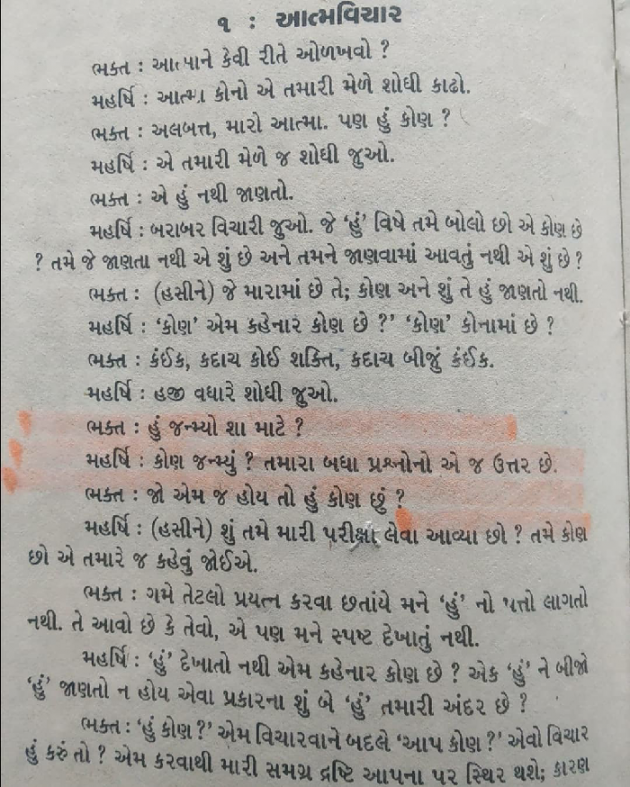 ૧ : આત્મવિચાર
ભક્ત : આત્માને કેવી રીતે ઓળખવો ?
મહર્ષિ : આત્મા કોનો એ તમારી મેળે શોધી કાઢો.
ભક્ત : અલબત્ત, મારો આત્મા. પણ હું કોણ ?
મહર્ષિ : એ તમારી મેળે જ શોધી જુઓ.
ભક્ત : એ હું નથી જાણતો.
મહર્ષિ : બરાબર વિચારી જુઓ. જે ‘હું’ વિષે તમે બોલો છો એ કોણ છે
? તમે જે જાણતા નથી એ શું છે અને તમને જાણવામાં આવતું નથી એ શું છે ?
ભક્ત : (હસીને) જે મારામાં છે તે; કોણ અને શું તે હું જાણતો નથી.
મહર્ષિ : ‘કોણ’ એમ કહેનાર કોણ છે ?’ ‘કોણ’ કોનામાં છે ?
ભક્ત : કંઈક, કદાચ કોઈ શક્તિ, કદાચ બીજું કંઈક.
મહર્ષિ : હજી વધારે શોધી જુઓ.
ભક્ત : હું જન્મ્યો શા માટે ?
મહર્ષિ : કોણ જન્મ્યું ? તમારા બધા પ્રશ્નોનો એ જ ઉત્તર છે.
ભક્ત : જો એમ જ હોય તો હું કોણ છું ?
મહર્ષિ : (હસીને) શું તમે મારી પરીક્ષા લેવા આવ્યા છો ? તમે કોણ
છો એ તમારે જ કહેવું જોઈએ.
ભક્ત : ગમે તેટલો પ્રયત્ન કરવા છતાંયે મને ‘હું’ નો પત્તો લાગતો
નથી. તે આવો છે કે તેવો, એ પણ મને સ્પષ્ટ દેખાતું નથી.
મહર્ષિ : ‘હું’ દેખાતો નથી એમ કહેનાર કોણ છે ? એક ‘હું’ ને બીજો
‘હું’ જાણતો ન હોય એવા પ્રકારના શું બે ‘હું’ તમારી અંદર છે ?
ભક્ત : ‘હું કોણ ?’ એમ વિચારવાને બદલે ‘આપ કોણ ?’ એવો વિચાર
હું કરું તો ? એમ કરવાથી મારી સમગ્ર દ્રષ્ટિ આપના પર સ્થિર થશે; કારણ